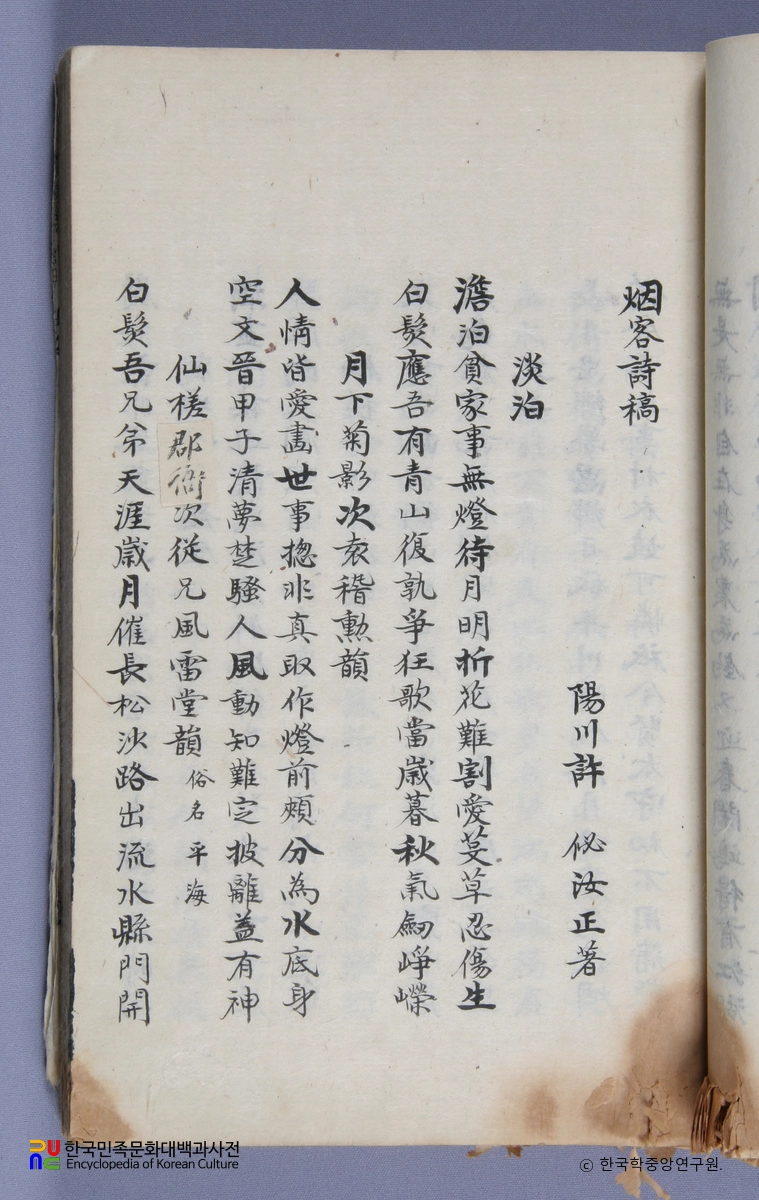 烟客詩稿
陽川許佖汝正著
淡泊
澹泊貧家事無燈待月明折花難割愛芟草忍傷生
白髮應吾有青山復孰爭狂歌當歲暮秋氣劒崢嶸
月下菊影次袁稽勲韻
人情皆愛畵世事揔非真取作燈前頰分為水底身
空文晉甲子清夢楚騷人風動知難定披離盖有神
仙槎郡衙次從兄風雷堂韻 俗名平海
白髮吾兄弟天涯歲月催長松沙路出流水縣門開
한국민족문화대백과사전
Encyclopedia of Korean Culture
© 한국학중앙연구원.